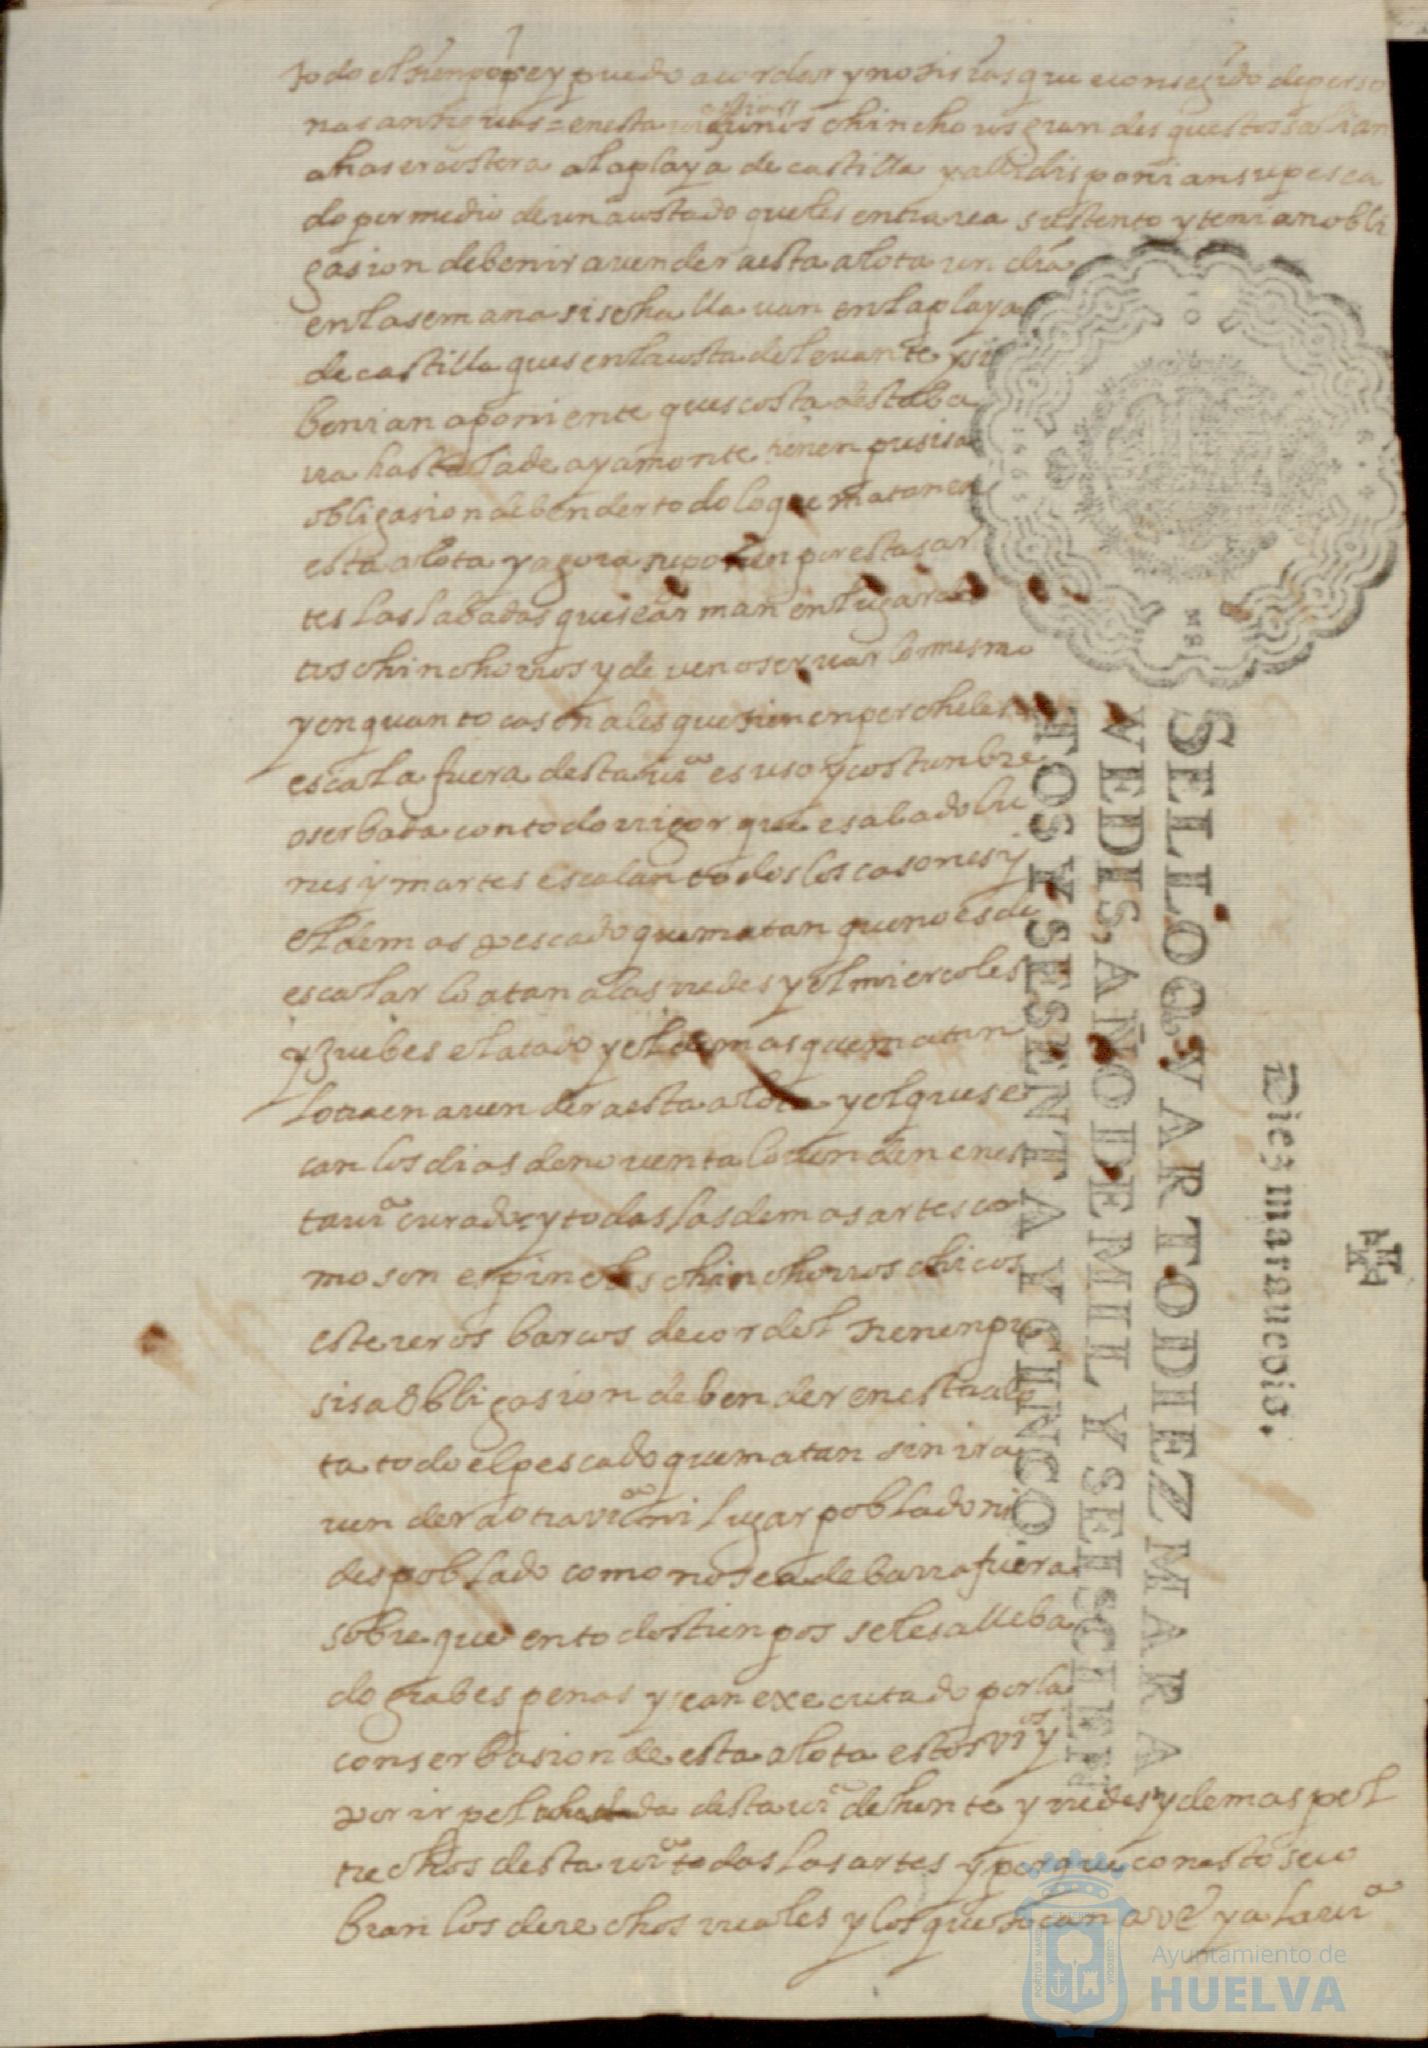 todo el tienpo q̃ e y puedo acordar y notisias que e consegido de perso
nas antiguas = en esta vi^a chinchoros grandes questos salian
a haser costera a la playa de castilla y alli disponian su pesca
do por medio de un acostado que les entrava sustento y tenian obli
gasion de benir a vender a esta alota un dia
en la semana si se hallavan en la playa
de castilla ques en la costa del levante y si
benian a poniente ques costa desta ba
rra hasta la de ayamonte tienen presisa
obligasion de bender todo lo que matan en
esta alota y agora suponen por estas ar
tes las labadas que se arman en lugar de
tos chinchorros y deven oservar lo mesmo
y en quanto casonales que tienen percheles
escala fuera desta vi^a es uso y costunbre
oserbada con todo rrigor que sabado lu
nes y martes escalan todos los casones y
el demas pescado que matan que no es de
escalar lo atan a las redes y el miercoles
y juebes el atado y el demas que matan
lo traen a vender a esta alota y el que se
can los dias de no venta lo venden en es
ta vi^a curado y todas las demas artes co
mo son espineles chinchorros chicos
estereros barcos de cordel tienen pre
sisa obligasion de bender en esta alo
ta todo el pescado que matan sin ir a
vender a otra vi^a ni lugar poblado ni
despoblado como no sea de barra fuera
sobre que en todos tienpos se les a lleba
do grabes penas y se an executado por la
conserbasion de esta alota estos vi^os y
por ir peltrechada desta vi^a de hente y redes y demas pel
trechos desta vi^a todas las artes y porque con esto se co
bran los derechos reales y los que tocan a y a la vi^a
SELLO QVARTO DIEZ MARA
VEDIS, AÑO DE MIL Y SEISCIEN
TOS Y SESENTA Y CINCO.
Diez marauedis.
Ayuntamiento de
HUELVA